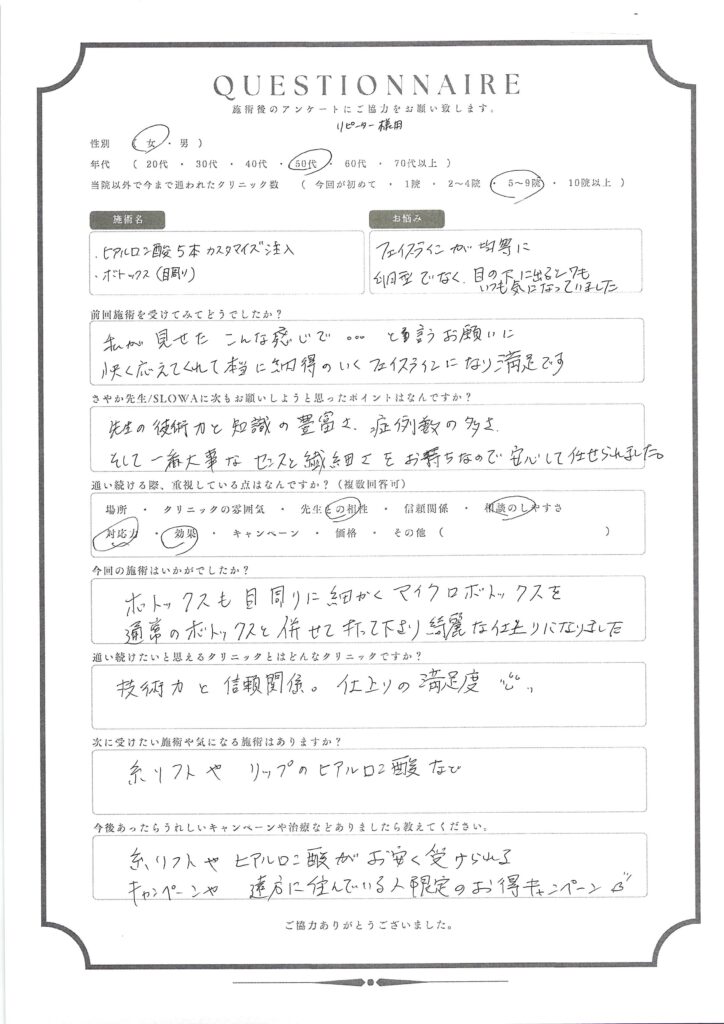 QUESTIONNAIRE
施術後のアンケートにご協力をお願い致します。
リピーター様用
性別 ( 女 ・ 男 )
年代 ( 20代 ・ 30代 ・ 40代 ・ 50代 ・ 60代 ・ 70代以上 )
当院以外で今まで通われたクリニック数 ( 今回が初めて ・ 1院 ・ 2～4院 ・ 5～9院 ・ 10院以上 )
施術名
・ヒアルロン酸5本 カスタマイズ注入
・ボトックス(目周り)
お悩み
フェイスラインが均等に
卵型でなく、目の下に出るシワも
いつも気になっていました
前回施術を受けてみてどうでしたか?
私が見せた こんな感じで 。。。 と言うお願いに
快く応えてくれて本当に納得のいくフェイスラインになり満足です
さやか先生/SLOWAに次もお願いしようと思ったポイントはなんですか?
先生の技術力と知識の豊富さ、症例数の多さ、
そして一番大事な センスと繊細さをお持ちなので安心して任せられました。
通い続ける際、重視している点はなんですか?(複数回答可)
場所 ・ クリニックの雰囲気 ・ 先生との相性 ・ 信頼関係 ・ 相談のしやすさ
対応力 ・ 効果 ・ キャンペーン ・ 価格 ・ その他 ( )
今回の施術はいかがでしたか?
ボトックスも目周りに細かくマイクロボトックスを
通常のボトックスと併せて打って下さり綺麗な仕上りになりました
通い続けたいと思えるクリニックとはどんなクリニックですか?
技術力と信頼関係。仕上りの満足度
次に受けたい施術や気になる施術はありますか?
糸リフトや リップのヒアルロン酸など
今後あったらうれしいキャンペーンや治療などありましたら教えてください。
糸リフトや ヒアルロン酸がお安く受けられる
キャンペーンや 遠方に住んでいる人限定のお得キャンペーン
ご協力ありがとうございました。